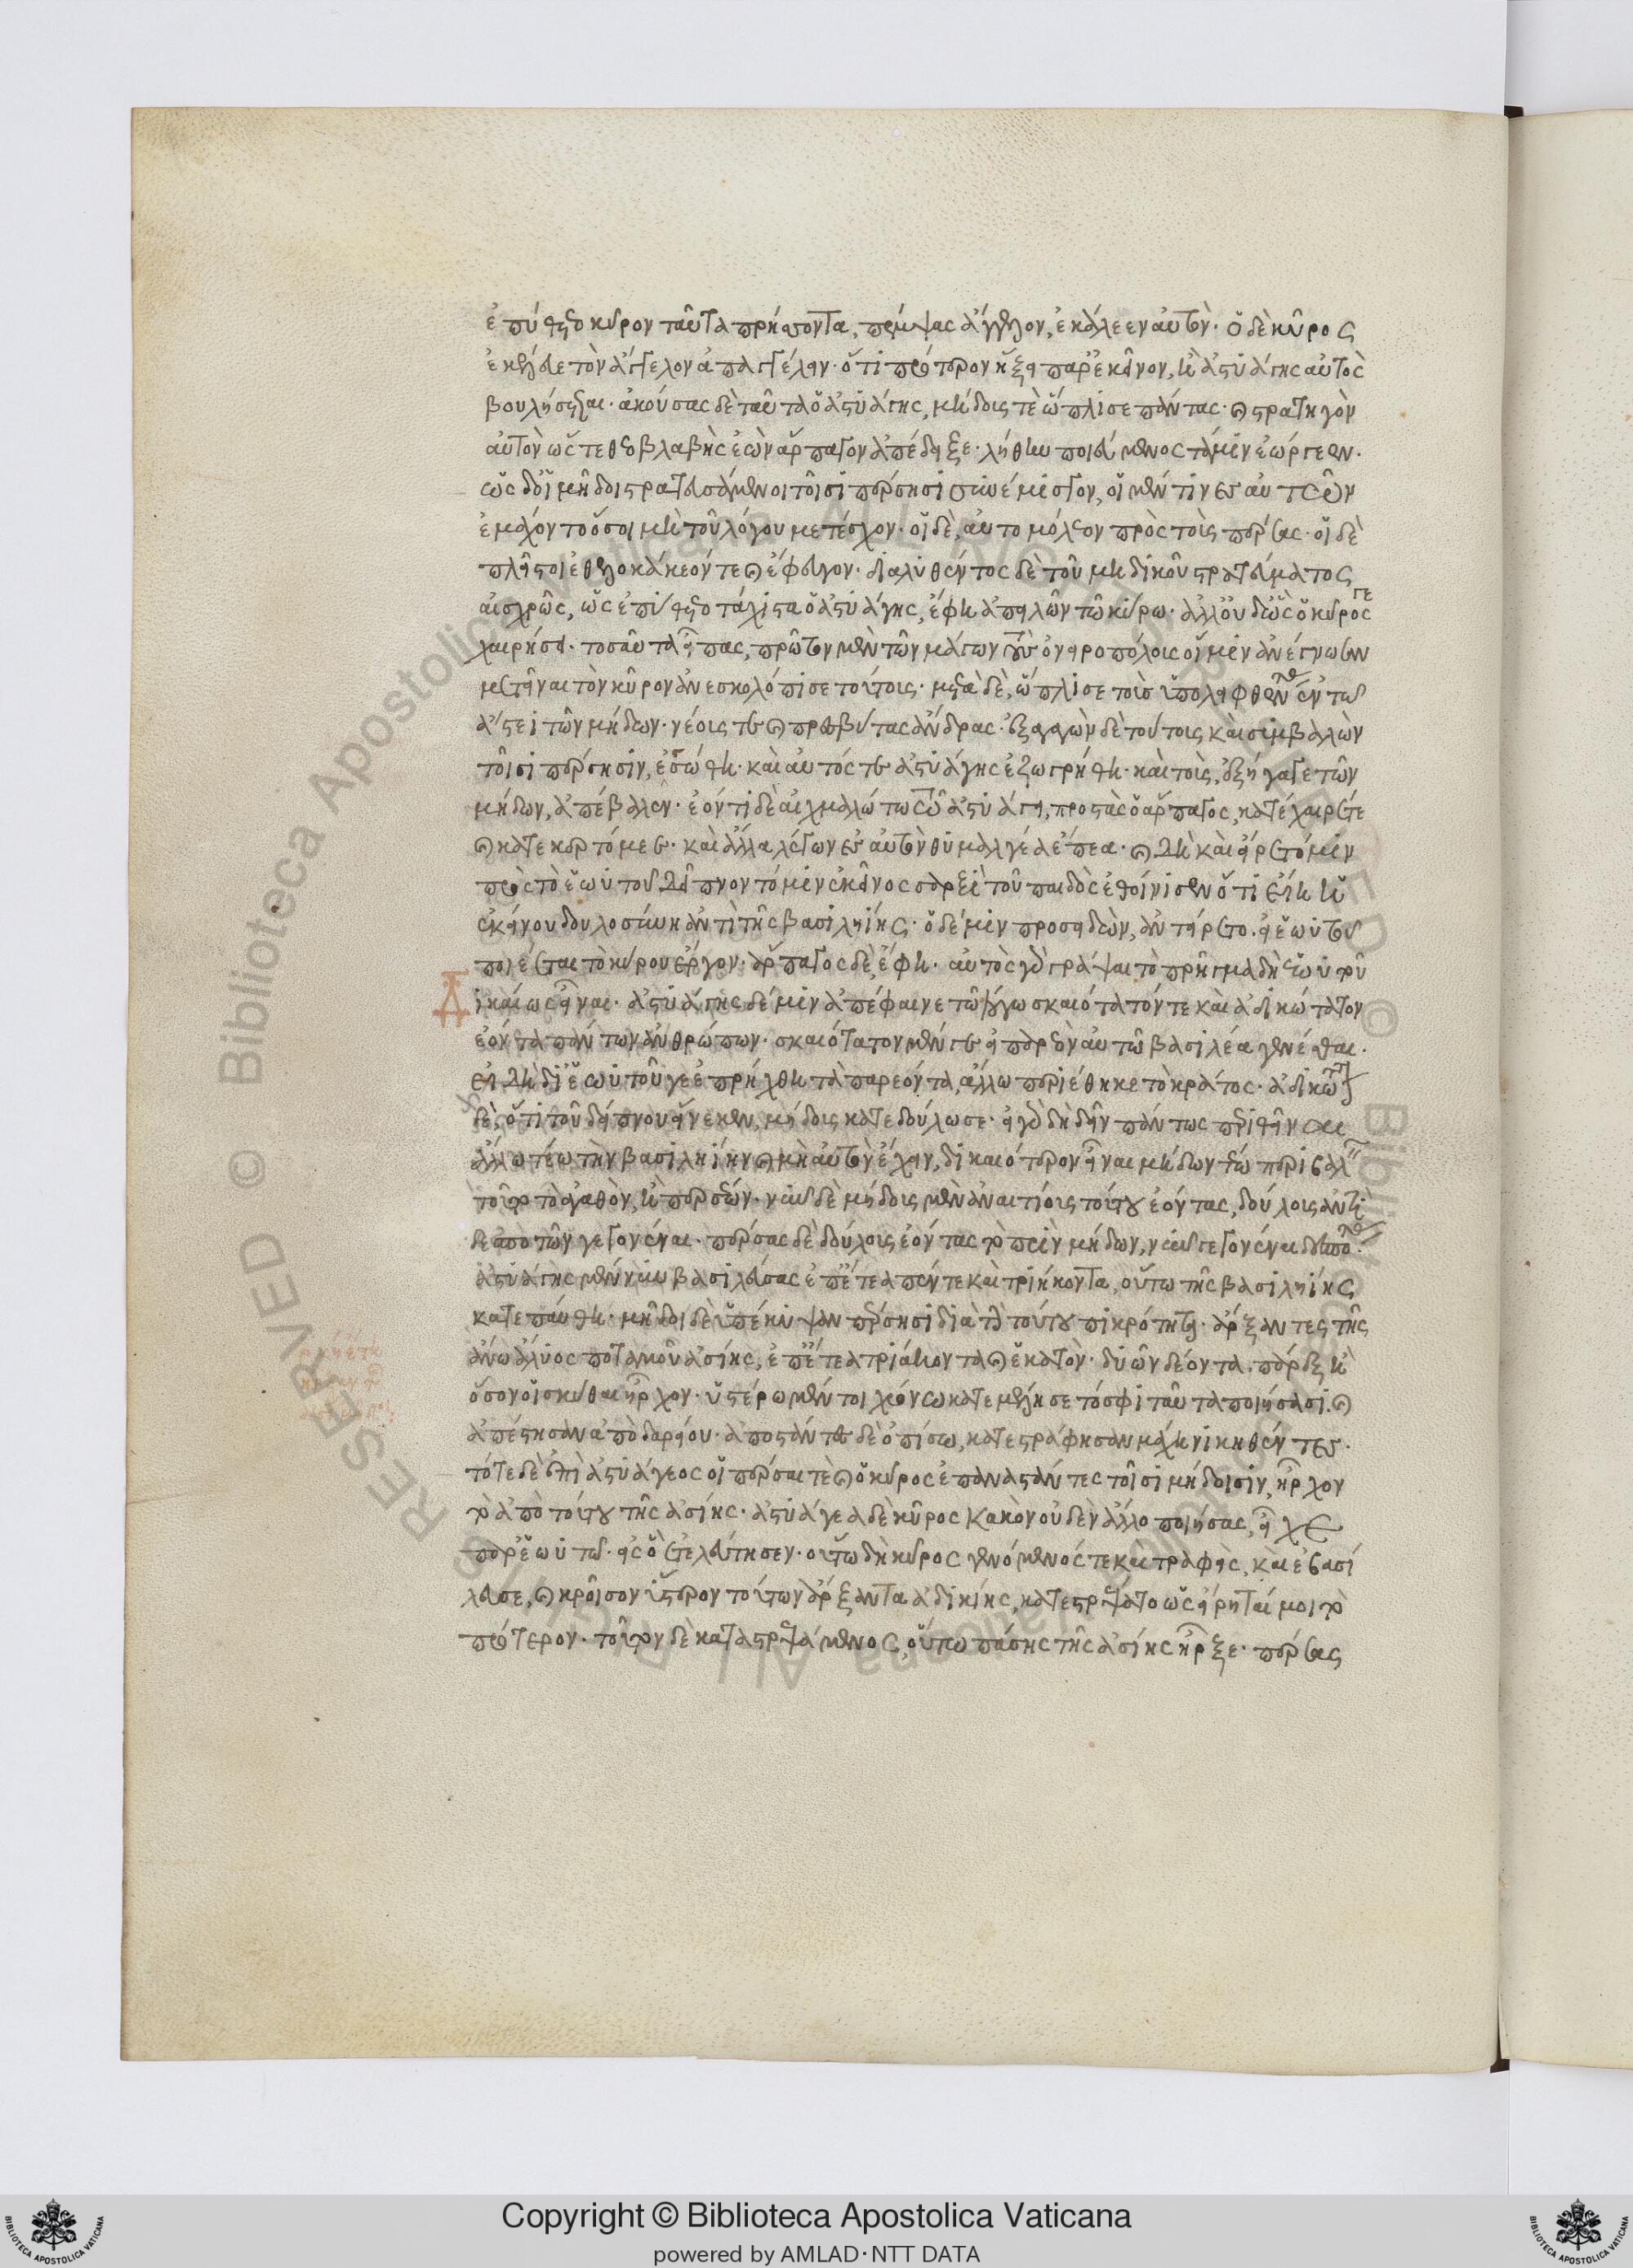 ἐπύθετο κῦρον ταῦτα πρήσσοντα, πέμψας ἄγγελον, ἐκάλεεν αὐτόν· ὁ δὲ κῦρος
ἐκέλευε τὸν ἄγγελον ἀπαγγέλλειν· ὅτι πρότερον ἥξει παρ' ἐκεῖνον, ἢ ἀστυάγης αὐτὸς
βουλήσεται· ἀκούσας δὲ ταῦτα ὁ ἀστυάγης, μήδους τὲ ὥπλισε πάντας· καὶ στρατηγὸν
αὐτὸν ὥστε θεοβλαβὴς ἐὼν ἅρπαγον ἀπέδειξε· λήθην ποιεύμενος τά μιν ἐώργεεν·
ὡς δ' οἱ μῆδοι στρατευσάμενοι τοῖσι πέρσησι συνέμισγον, οἱ μέν τινες αὐτῶν
ἐμάχοντο ὅσοι μὴ τοῦ λόγου μετέσχον· οἱ δὲ, αὐτομόλεον πρὸς τοὺς πέρσας· οἱ δὲ
πλεῖστοι ἐθελοκάκεόν τε καὶ ἔφευγον· διαλυθέντος δὲ τοῦ μηδικοῦ στρατεύματος
αἰσχρῶς, ὡς ἐπύθετο τάχιστα ὁ ἀστυάγης, ἔφη ἀπειλῶν τῶ κύρω· ἀλλ' οὐδ' ὣς ὁ κῦρός γε
χαιρήσει· τοσαῦτα εἴπας, πρῶτον μὲν τῶν μάγων τοὺς ὀνειροπόλους οἵ μιν ἀνέγνωσαν
μετεῖναι τὸν κῦρον ἀνεσκολόπισε τούτους· μετὰ δὲ, ὥπλισε τοὺς ὑπολειφθέντας ἐν τῶ
ἄστεϊ τῶν μήδων· νέους τε καὶ πρεσβύτας ἄνδρας· ἐξαγαγὼν δὲ τούτους καὶ συμβαλὼν
τοῖσι πέρσησιν, ἑσσώθη· καὶ αὐτός τε ἀστυάγης ἐζωγρήθη· καὶ τοὺς, ἐξήγαγε τῶν
μήδων, ἀπέβαλεν· ἐόντι δὲ αἰχμαλώτω τῶ ἀστυάγη, προστὰς ὁ ἅρπαγος, κατέχαιρέ τε
καὶ κατεκερτόμεε· καὶ ἄλλα λέγων ἐς αὐτὸν θυμαλγέα ἔπεα· καὶ δὴ καὶ εἴρετό μιν
πρὸς τὸ ἑωυτοῦ δεῖπνον τό μιν ἐκεῖνος σαρξὶ τοῦ παιδὸς ἐθοίνισεν ὅτι εἴη ἡ
ἐκείνου δουλοσύνη ἀντὶ τῆς βασιληίης· ὁ δέ μιν προσιδὼν, ἀντείρετο. εἰ ἑωυτοῦ
ποιέεται τὸ κύρου ἔργον· ἅρπαγος δὲ, ἔφη· αὐτὸς γὰρ γράψαι τὸ πρῆγμα δὴ ἑωυτοῦ
δικαίως εἶναι· ἀστυάγης δέ μιν ἀπέφαινε τῶ λόγω σκαιότατόν τε καὶ ἀδικώτατον
ἐόντα πάντων ἀνθρώπων· σκαιότατον μέν γε εἰ παρεὸν αὐτῶ βασιλέα γενέσθαι·
εἰ δὴ δι' ἑωυτοῦ γε ἐπρήχθη τὰ παρεόντα, ἄλλω περιέθηκε τὸ κράτος· ἀδικώτατον
δὲ, ὅτι τοῦ δείπνου εἵνεκεν, μήδους κατεδούλωσε· εἰ γὰρ δὴ δεῖν πάντως περιθεῖναι
ἄλλω τέω τὴν βασιληίην καὶ μὴ αὐτὸν ἔχειν, δικαιότερον εἶναι μήδων τέω περιβαλεῖν
τοῦτο τὸ ἀγαθὸν, ἢ περσέων· νῦν δὲ μήδους μὲν ἀναιτίους τούτου ἐόντας, δούλους ἀντὶ
δεσποτῶν γεγονέναι· πέρσας δὲ δούλους ἐόντας τὸ πρὶν μήδων, νῦν γεγονέναι δεσπότας.
ἀστυάγης μέν νυν βασιλεύσας ἐπ' ἔτεα πέντε καὶ τριήκοντα, οὕτω τῆς βασιληίης
κατεπαύθη· μῆδοι δὲ ὑπέκυψαν πέρσησι διὰ τὴν τούτου πικρότητα· ἄρξαντες τῆς
ἄνω ἅλυος ποταμοῦ ἀσίης, ἐπ' ἔτεα τριήκοντα καὶ ἑκατὸν· δυῶν δέοντα. πάρεξ ἢ
ὅσον οἱ σκύθαι ἦρχον· ὑστέρω μέντοι χρόνω κατεμέλησε τό σφι ταῦτα ποιήσασι. καὶ
ἀπέστησαν ἀπὸ δαρείου· ἀποστάντες δὲ ὀπίσω, κατεστράφησαν μάχη νικηθέντες·
τότε δὲ ἐπὶ ἀστυάγεος οἱ πέρσαι τὲ καὶ ὁ κῦρος ἐπαναστάντες τοῖσι μήδοισιν, ἦρχον
τὸ ἀπὸ τούτου τῆς ἀσίης· ἀστυάγεα δὲ κῦρος κακὸν οὐδὲν ἄλλο ποιήσας, εἶχε
παρ' ἑωυτῶ· ἐς ὃ ἐτελεύτησεν· οὕτω δὴ κῦρος γενόμενός τε καὶ τραφεὶς, καὶ ἐβασί
λευσε, καὶ κροῖσον ὕστερον τούτων ἄρξαντα ἀδικίης, κατεστρέψατο ὡς εἴρηταί μοι τὸ
πρότερον· τοῦτον δὲ καταστρεψάμενος, οὕτω πάσης τῆς ἀσίης ἦρξε· πέρσας
Copyright © Biblioteca Apostolica Vaticana
powered by AMLAD·NTT DATA